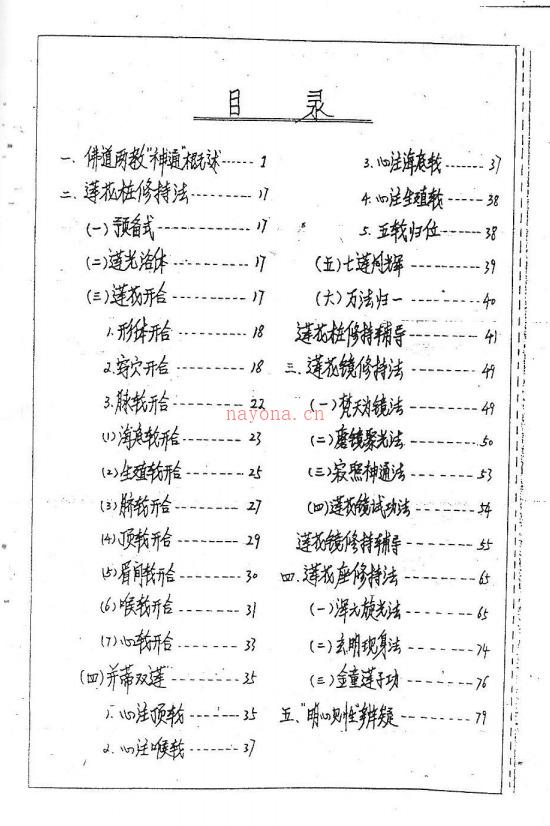 目 录
一、佛道两教"神通"概述------1
二、莲花桩修持法------17
(一)预备式------17
(二)莲光浴体------17
(三)莲花开合------17
1.形体开合------18
2.窍穴开合------18
3.脉轮开合------22
(1)海底轮开合------23
(2)生殖轮开合------25
(3)脐轮开合------27
(4)顶轮开合------29
(5)眉间轮开合------30
(6)喉轮开合------31
(7)心轮开合------33
(四)并蒂双莲------35
1.心注顶轮------35
2.心注喉轮------37
3.心注海底轮------37
4.心注生殖轮------38
5.五轮归位------38
(五)七莲同辉------39
(六)万法归一------40
莲花桩修持辅导------41
三、莲花镜修持法------49
(一)梵天为镜法------49
(二)磨镜聚光法------50
(三)寂照神通法------53
(四)莲花镜试功法------54
莲花镜修持辅导------55
四、莲花座修持法------65
(一)浑元放光法------65
(二)玄明现身法------74
(三)金童莲子功------76
五、"明心见性"辨疑------79
nayona.cn